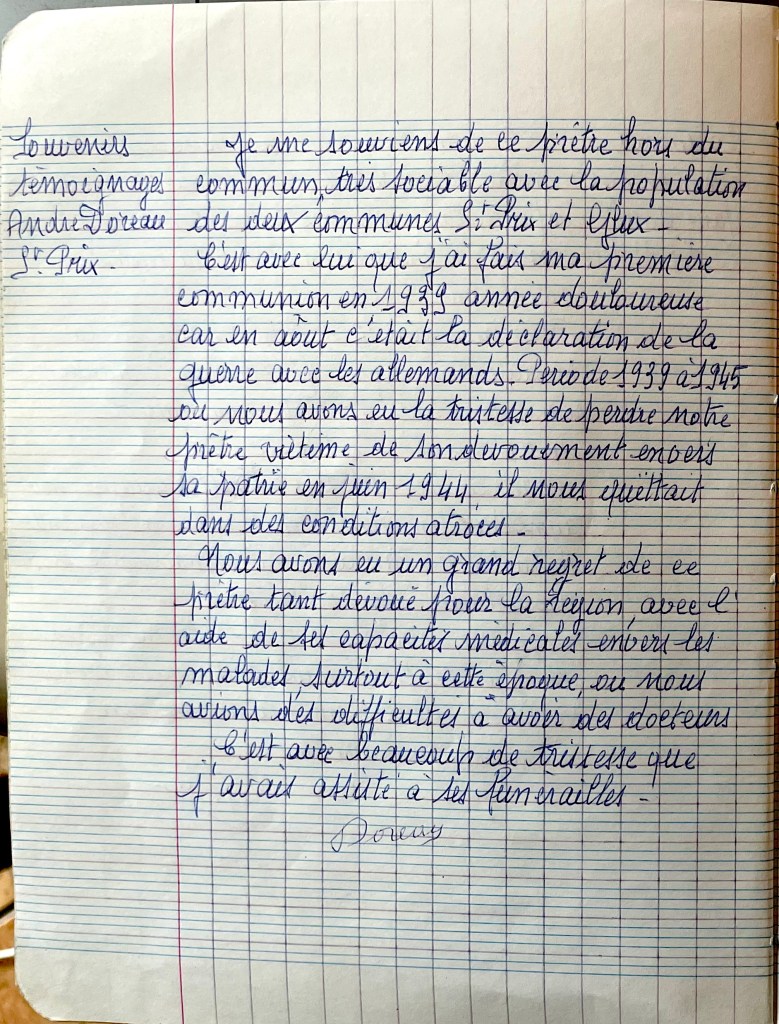 Souvenirs
témoignages
André Doreau
St. Prix.
Je me souviens de ce prêtre hors du
commun, très sociable avec la population
des deux communes St. Prix et Glux -
C'est avec lui que j'ai fais ma première
communion en 1939 année douloureuse
car en août c'était la déclaration de la
guerre avec les allemands. Periode 1939 à 1945
ou nous avons eu la tristesse de perdre notre
prêtre victime de son devouement envers
sa patrie en juin 1944, il nous quittait
dans des conditions atroces -
Nous avons eu un grand regret de ce
prêtre tant dévoué pour la Région, avec l'
aide de ses capacités médicales envers les
malades, surtout à cette époque, ou nous
avions des difficultés à avoir des docteurs
C'est avec beaucoup de tristesse que
j'avais assisté à ses funérailles -